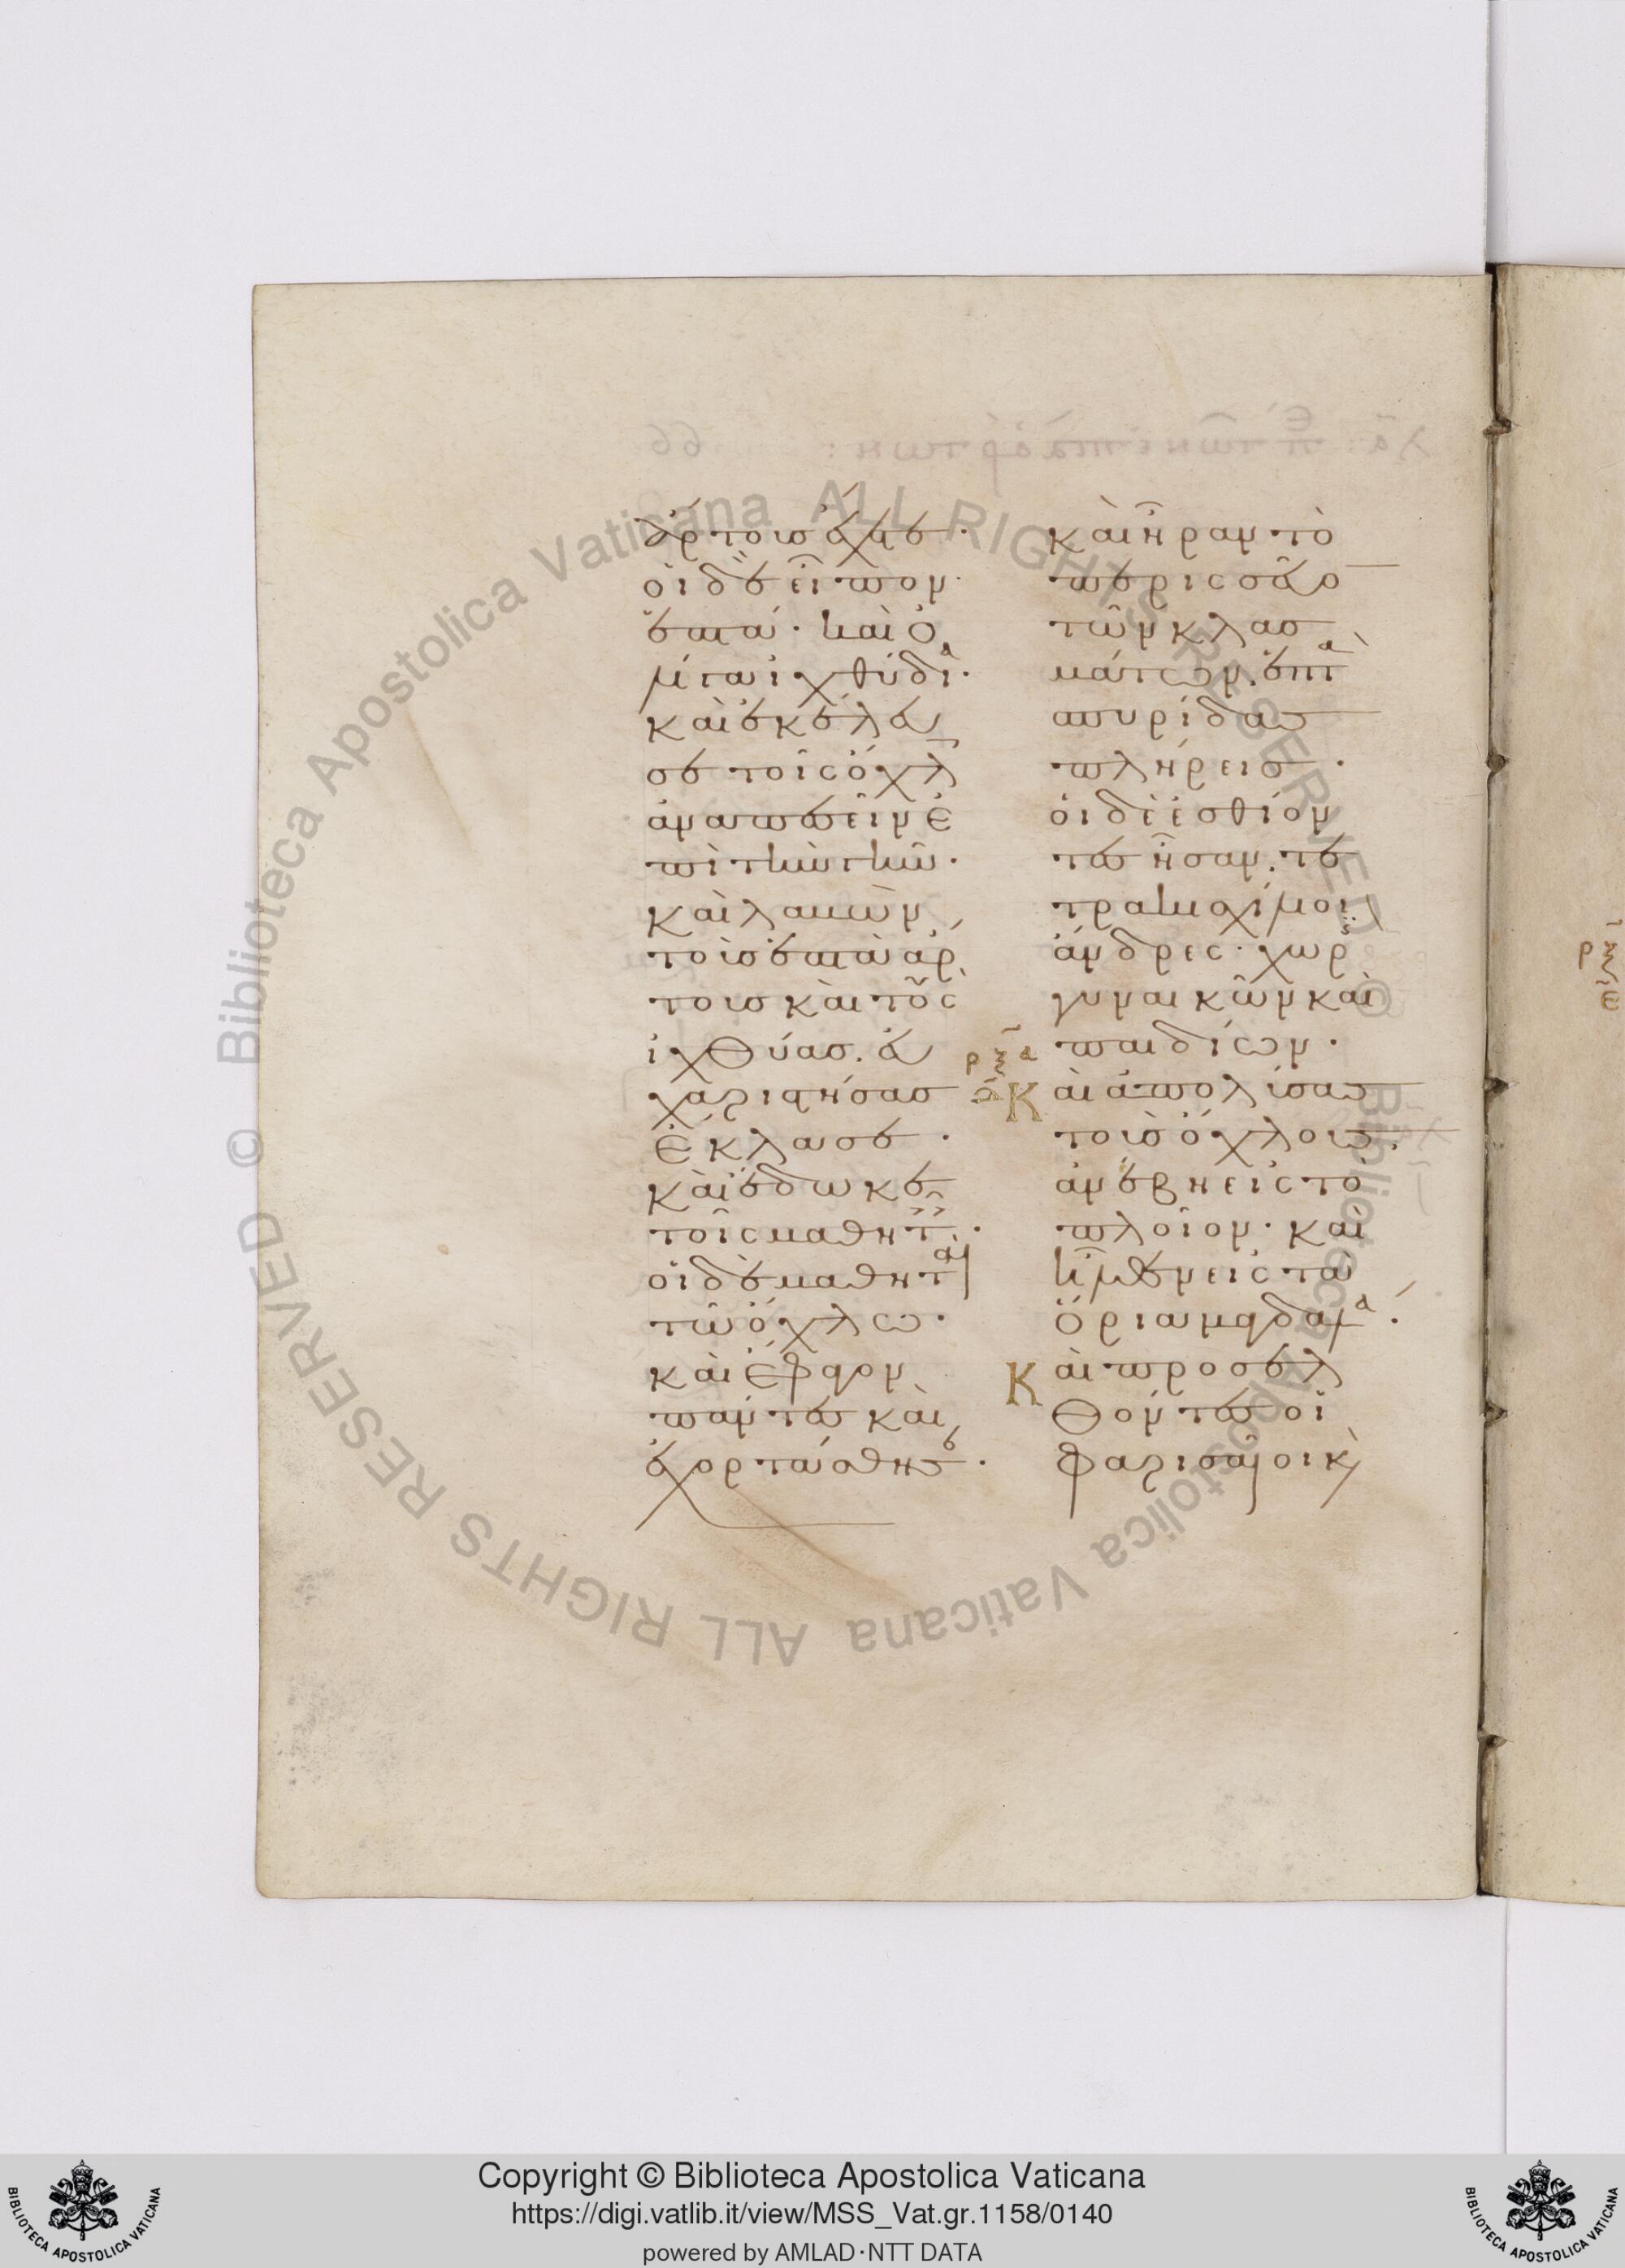 ἄρτους ἔχετε·
οἱ δὲ εἶπον·
ἑπτά· καὶ ὀ
λίγα ἰχθύδια·
καὶ ἐκέλευ
σε τοῖς ὄχλοις
ἀναπεσεῖν ἐ
πὶ τὴν γῆν·
καὶ λαβὼν
τοὺς ἑπτὰ ἄρ
τους καὶ τοὺς
ἰχθύας. εὐ
χαριστήσας
ἔκλασε·
καὶ ἔδωκε
τοῖς μαθηταῖς·
οἱ δὲ μαθηταὶ
τῷ ὄχλω·
καὶ ἔφαγον
πάντες καὶ
ἐχορτάσθησαν·
καὶ ἦραν τὸ
περισσεῦο
τῶν κλασ
μάτων. ἑπτὰ
σπυρίδας
πλήρεις·
οἱ δὲ ἐσθίον
τες ἦσαν. τε
τρακισχίλιοι
ἄνδρες· χωρὶς
γυναικῶν καὶ
παιδίων·
ρξα
Καὶ ἀπολύσας
τοὺς ὄχλους.
ἀνέβη εἰς τὸ
πλοῖον· καὶ
ἦλθεν εἰς τὰ
ὅρια μαγδαλά·
Καὶ προσελ
θόντες οἱ
φαρισαῖοι κὶ
Copyright © Biblioteca Apostolica Vaticana
https://digi.vatlib.it/view/MSS_Vat.gr.1158/0140
powered by AMLAD·NTT DATA